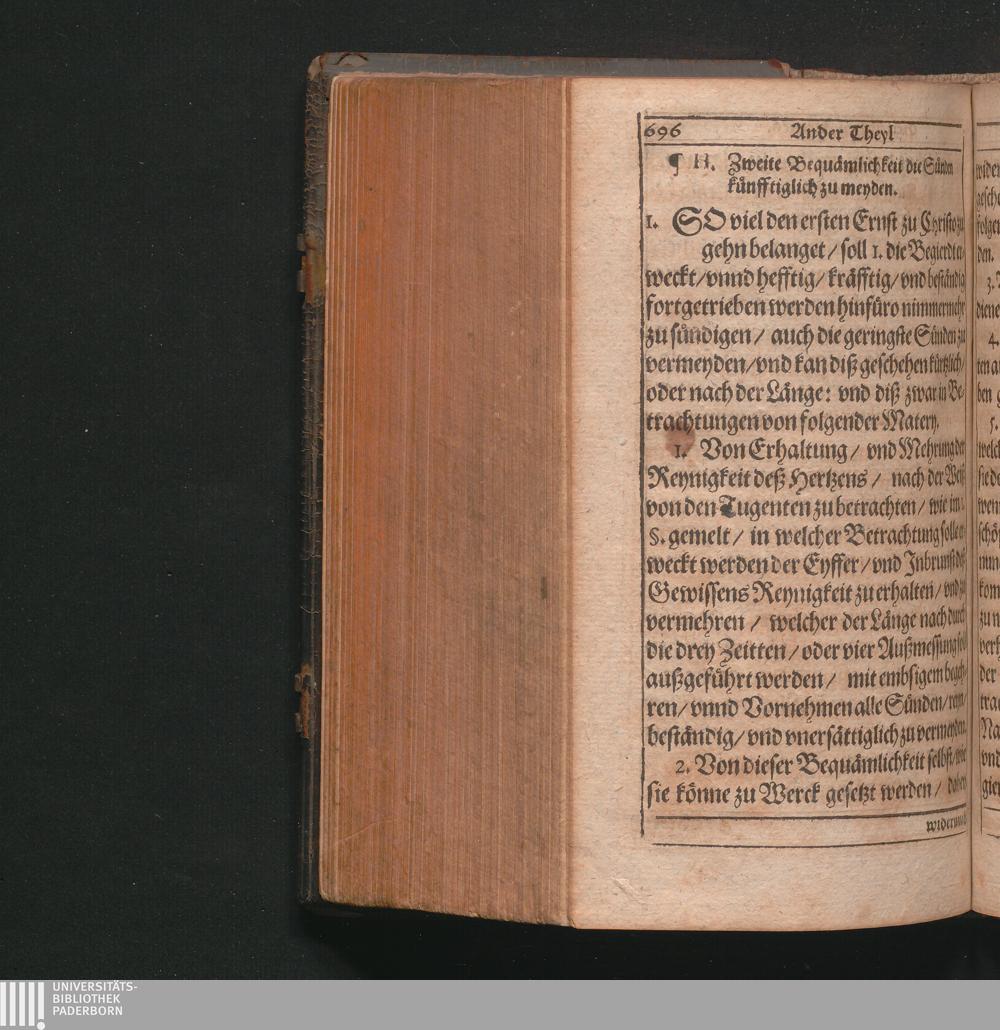 696 Ander Theyl
¶ II. Zweite Bequämlichkeit die Sünden
künfftiglich zu meyden.
1. SO viel den ersten Ernst zu Christo zu
gehn belanget / soll 1. die Begierdt er-
weckt / vnnd hefftig / kräfftig / vnd beständig
fortgetrieben werden hinfüro nimmermehr
zu sündigen / auch die geringste Sünden zu
vermeyden / vnd kan diß geschehen kürtzlich /
oder nach der Länge: vnd diß zwar in Be-
trachtungen von folgender Matery.
1. Von Erhaltung / vnd Mehrung der
Reynigkeit deß Hertzens / nach der Weiß
von den Tugenten zu betrachten / wie im
§. gemelt / in welcher Betrachtung solle er-
weckt werden der Eyffer / vnd Inbrunst deß
Gewissens Reynigkeit zu erhalten / vnd zu
vermehren / welcher der Länge nach durch
die drey Zeitten / oder vier Außmessung soll
außgeführt werden / mit embsigem begeh-
ren / vnnd Vornehmen alle Sünden / reyn /
beständig / vnd vnersättiglich zu vermeyden.
2. Von dieser Bequämlichkeit selbst / wie
sie könne zu Werck gesetzt werden /
widerumb
3.
4.
5.
UNIVERSITÄTS-
BIBLIOTHEK
PADERBORN